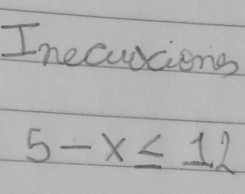 Inecuxciones
5 - x ≤ 12